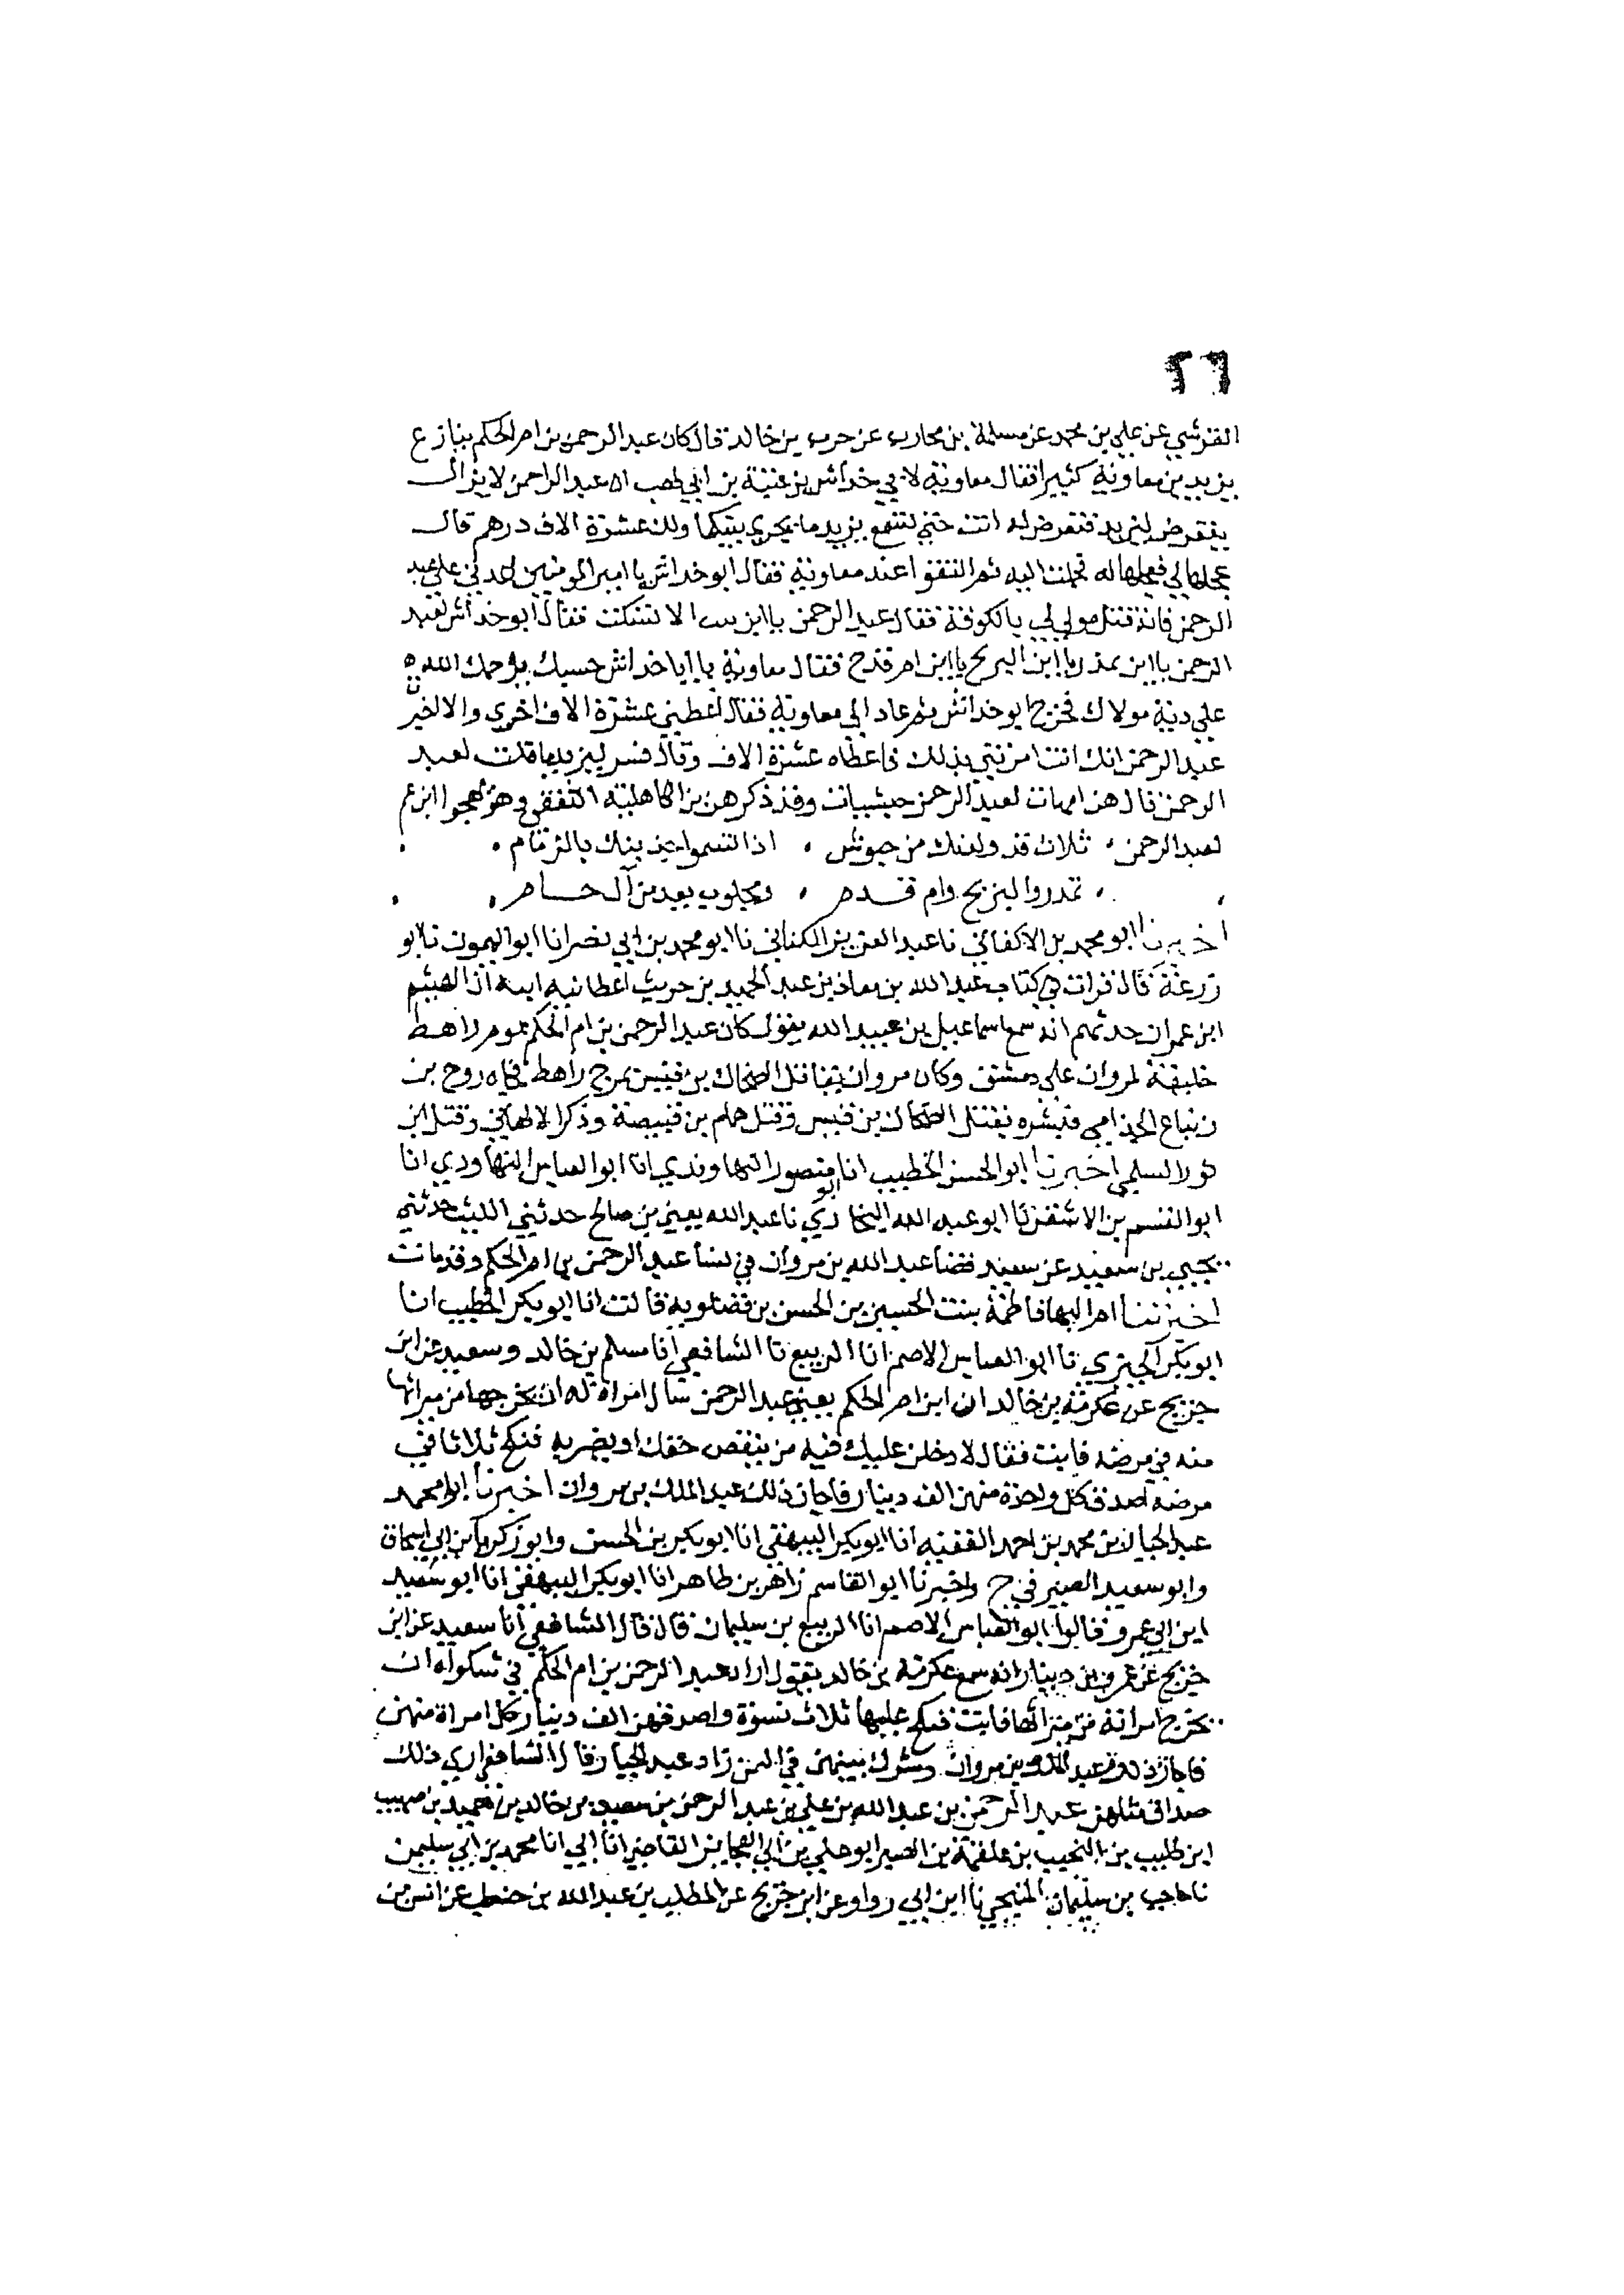 ٢٦
القرشي عن علي بن محمد عن مسلمة بن محارب عن حرب بن خالد قال كان عبد الرحمن بن ام الحكم ينازع
يزيد بن معاوية كثيرا فقال معاوية لابي خداش بن عتبة بن ابي لهب ان عبد الرحمن لا يزال
يتعرض ليزيد فتعرض له انت حتى تسمع يزيد ما يجري بينكما ولك عشرة الاف درهم قال
عجلها لي فعجلها له فحملت اليه ثم التقوا عند معاوية فقال ابو خداش يا امير المومنين اعدني على عبد
الرحمن فانه قتل مولى لي بالكوفة فقال عبد الرحمن يا ابن الا تسكت فقال ابو خداش لعبد
الرحمن يا ابن تمدر يا ابن البريح يا ابن ام قدح فقال معاوية يا ابا خداش حسبك يرحمك الله
علي دية مولاك فخرج ابو خداش ثم عاد الى معاوية فقال اعطني عشرة الاف اخرى والا اخبرت
عبد الرحمن انك انت امرتني بذلك فاعطاه عشرة الاف وقال فسر ليزيد ما قلت لعبد
الرحمن قال هن امهات لعبد الرحمن حبشيات وقد ذكرهن بن الكاهلية الثقفي وهو يهجو ابن عم
لعبد الرحمن ثلاث قد ولدنك من حبوش اذا تسموا بك بالزمام
تمدر والبريح وام قدح ومجلوب يعد من آل حام
اخبرنا ابو محمد بن الاكفاني نا عبد العزيز الكتاني نا ابو محمد بن ابي نصر انا ابو الميمون نا ابو
زرعة قال قرات في كتاب عبد الله بن معاذ بن عبد الحميد بن حريث اعطانيه ابنه ان الهيثم
ابن عمران حدثهم انه سمع اسماعيل بن عبيد الله يقول كان عبد الرحمن بن ام الحكم يوم راهط
خليفة لمروان على دمشق وكان مروان يقاتل الضحاك بن قيس بمرج راهط فجاه روح بن
زنباع الجذامي فبشره بقتل الضحاك بن قيس وقتل همام بن قبيصة وذكر لالهاني وقتل ابن
ثور السلمي اخبرنا ابو الحسن الخطيب انا ابو منصور النهاوندي انا ابو العباس النهاوندي انا
ابو القسم بن الاشقر نا ابو عبد الله البخاري نا عبد الله يعني بن صالح حدثني الليث حدثني
يحيى بن سعيد عن سعيد قضا عبد الله بن مروان في نسا عبد الرحمن بن ام الحكم وقد مات
اخبرتنا ام البها فاطمة بنت الحسين بن الحسن بن فضلويه قالت انا ابو بكر الخطيب انا
ابو بكر الحيري نا ابو العباس الاصم انا الربيع نا الشافعي انا مسلم بن خالد وسعيد عن ابن
جريج عن عكرمة بن خالد ان ابن ام الحكم يعني عبد الرحمن سال امراة له ان يخرجها من ميراثها
منه في مرضه فابت فقال لادخلن عليك فيه من ينقص حقك او يضر به فنكح ثلاثا في
مرضه اصدق كل واحدة منهن الف دينار فاجاز ذلك عبد الملك بن مروان اخبرنا ابو محمد
عبد الجبار بن محمد بن احمد الفقيه انا ابو بكر البيهقي انا ابو بكر بن الحسن وابو زكريا بن ابي اسحاق
وابو سعيد الصيرفي ح واخبرنا ابو القاسم زاهر بن طاهر انا ابو بكر البيهقي انا ابو سعيد
ابن ابي عمرو قالوا ابو العباس الاصم انا الربيع بن سليمان قال قال الشافعي انا سعيد عن ابن
جريج عن عمرو بن دينار انه سمع عكرمة بن خالد يقول اراد عبد الرحمن بن ام الحكم في شكواه ان
يخرج امراته من ميراثها فابت فنكح عليها ثلاث نسوة واصدقهن الف دينار كل امراة منهن
فاجاز ذلك عبد الملك بن مروان وشرك بينهن في الثمن زاد عبد الجبار قال الشافعي ارى ذلك
صداق مثلهن عبد الرحمن بن عبد الله بن علي بن عبد الرحمن بن سعيد بن خالد بن حميد بن صهيب
ابن طليب بن النحيب بن علقمة بن الصبر ابو علي بن ابي العجايز القاضي انا ابي انا محمد بن ابي سليمن
نا حاجب بن سليمان المنبجي نا ابن ابي رواد عن ابن جريج عن المطلب بن عبد الله بن حنطب عن انس بن